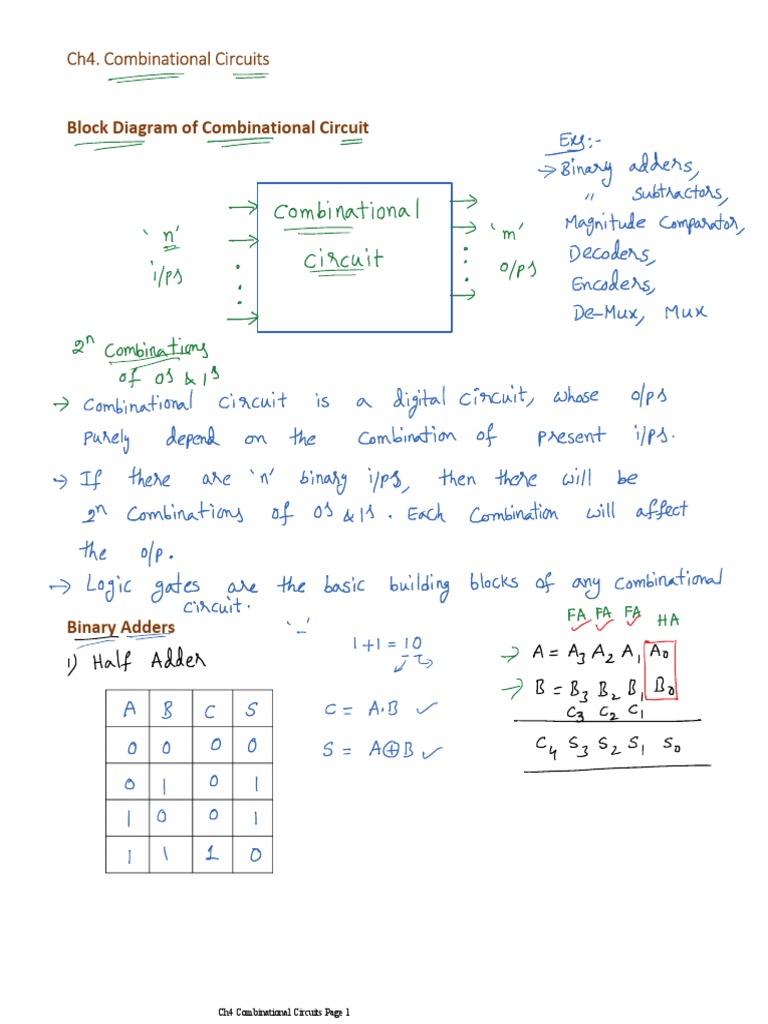 Ch4. Combinational Circuits
Block Diagram of Combinational Circuit
Exs:-
→ Binary adders,
" Subtractors,
Magnitude Comparator,
Decoders,
Encoders,
De-Mux, Mux
Combinational
Circuit
'n'
i/ps
'm'
o/ps
2ⁿ Combinations
of 0s & 1s
→ Combinational circuit is a digital circuit, whose o/ps
purely depend on the combination of present i/ps.
→ If there are 'n' binary i/ps, then there will be
2ⁿ Combinations of 0s & 1s. Each Combination will affect
the o/p.
→ Logic gates are the basic building blocks of any combinational
circuit.
Binary Adders
1) Half Adder
A B C S
0 0 0 0
0 1 0 1
1 0 0 1
1 1 1 0
1+1 = 10
C = A·B ✓
S = A⊕B ✓
FA FA FA HA
→ A = A₃ A₂ A₁ A₀
→ B = B₃ B₂ B₁ B₀
C₃ C₂ C₁
C₄ S₃ S₂ S₁ S₀
Ch4 Combinational Circuits Page 1